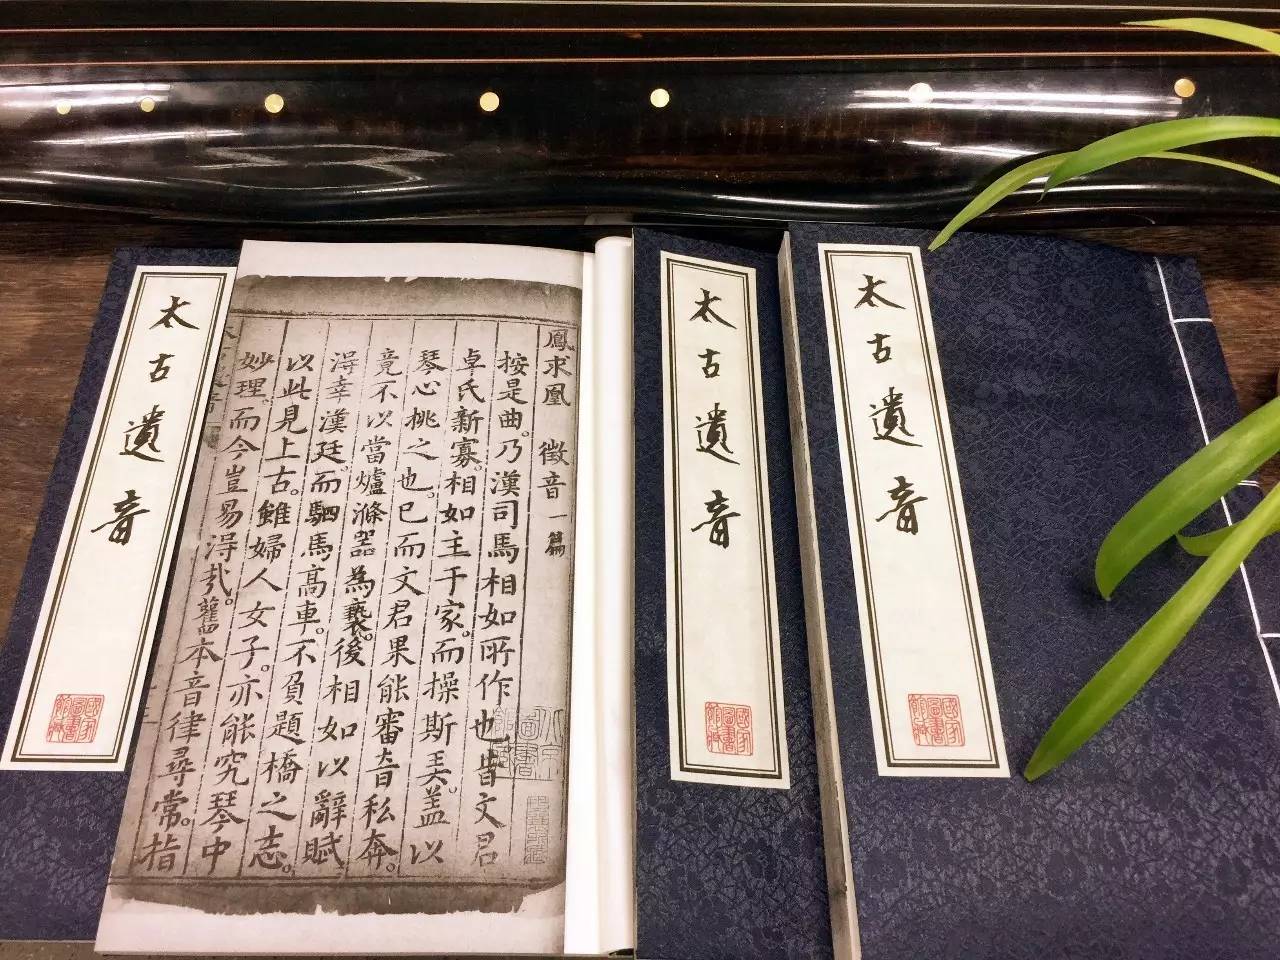 太古遺音
國家圖書館藏
太古遺音
國家圖書館藏
太古遺音
國家圖書館藏
鳳求凰 徵音一篇
按是曲。乃漢司馬相如所作也昔文君
卓氏新寡。相如主于家。而操斯美。蓋以
琴心桃之也。已而文君果能審音私奔。
竟不以當爐滌器為褻。後相如以辭賦
淂幸漢廷。而駟馬高車。不負題橋之志。
以此見上古。雖婦人女子。亦能究琴中
妙理。而今豈易淂哉。舊本音律尋常。指